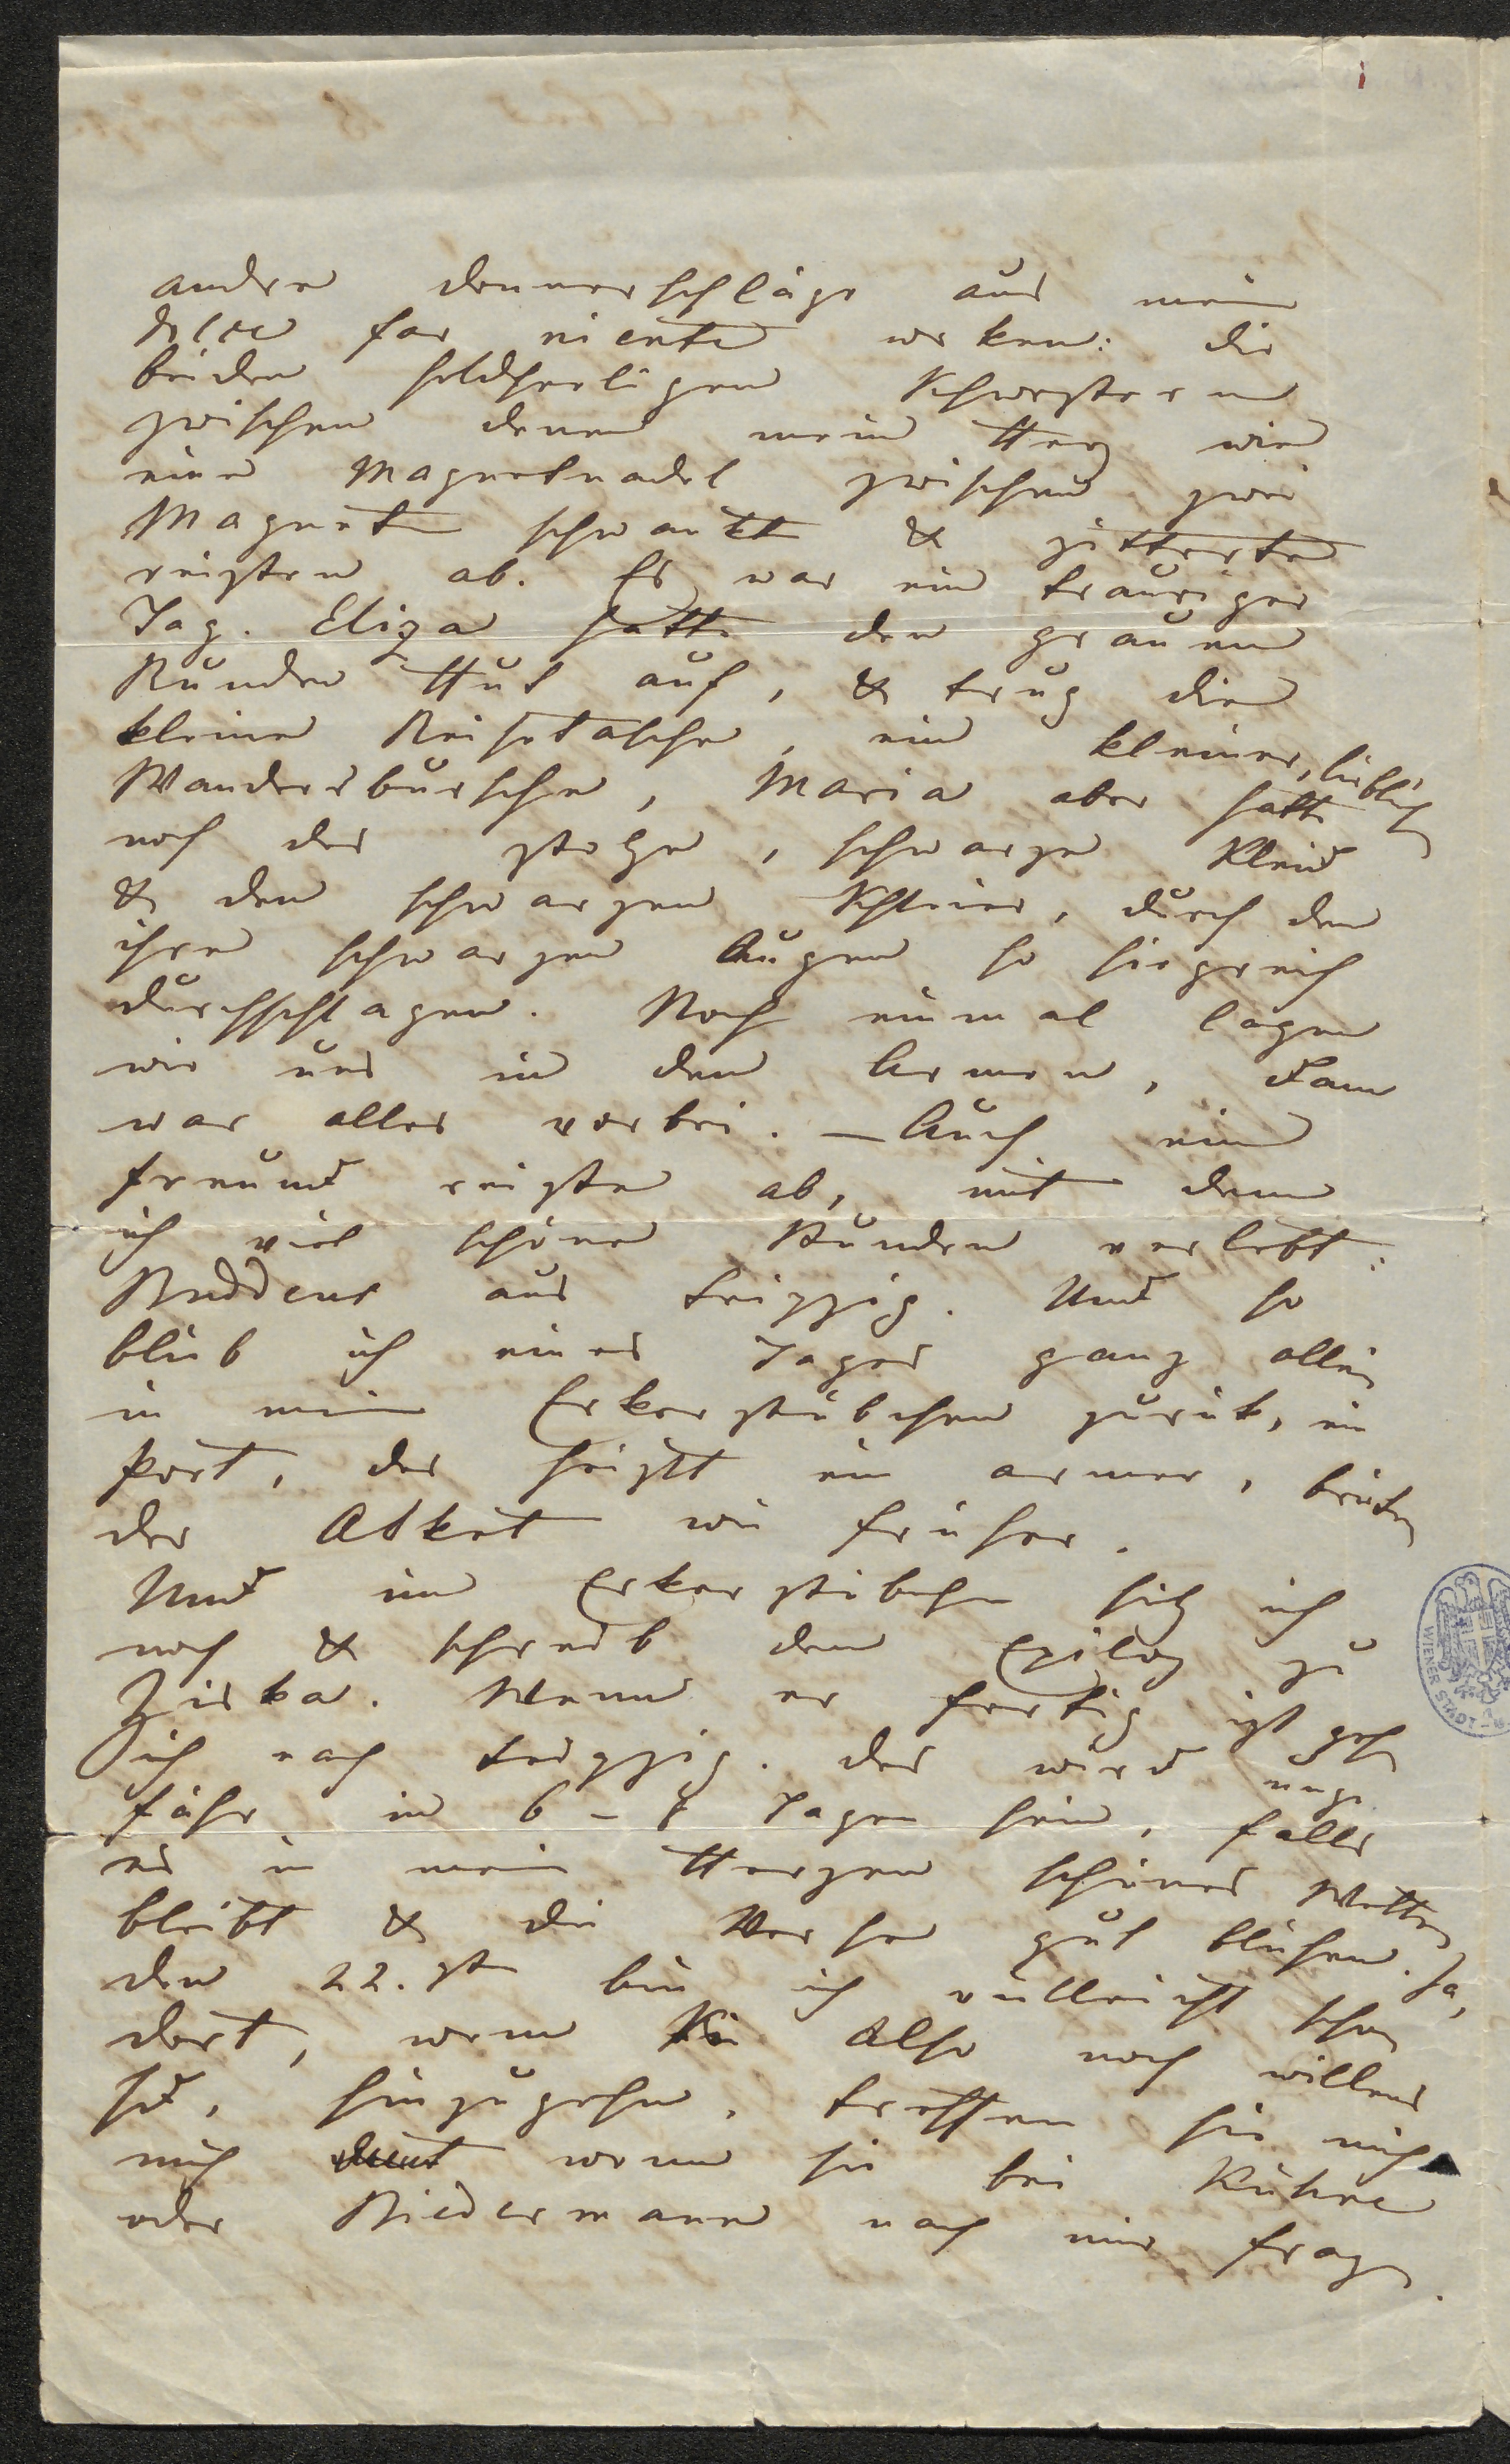 andre donnerschläge aus mein
dolce far niente wecken: die
beiden holdseeligen Schwestern
zwischen denen mein Herz wie
eine Magnetnadel zwischen zwei
Magneten schwankte & zitterte
reisten ab. Es war ein trauriger
Tag. Eliza hatte den grauen
Runden Hut auf, & trug die
kleine Reisetasche, ein kleiner, lieblicher
Wandersbursche, Maria aber hatte
noch das stolze, schwarze Kleid
& den schwarzen Schleier, durch den
ihre schwarzen Augen so siegreich
durchschlagen. Noch einmal lagen
wir uns in den Armen, dann
war alles vorbei. – Auch ein
Freund reiste ab, mit dem
ich viel schöne Stunden verlebt:
Buddeus aus Leipzig. Und so
blieb ich eines Tages ganz allein
in mein Erkerstübchen zurük, ein
Poet, das heißt ein armer, brüten
der Asket wie früher.
Und im Erkerstübchen sitz ich
noch & schreib den Epilog zu
Ziska. Wenn er fertig ist geh
ich nach Leipzig. das wird unge
fähr in 6 – 8 Tagen sein, falls
es in mein Herzen schönes Wetter
bleibt & die Verse gut blühen. Ja,
den 22.sten bin ich vielleicht schon
dort, wenn Sie also noch willens
sind, hinzugehen, treffen sie mich
mich wenn sie bei Kühne
oder Biedermann nach mir fragen.
WIENER STADT-